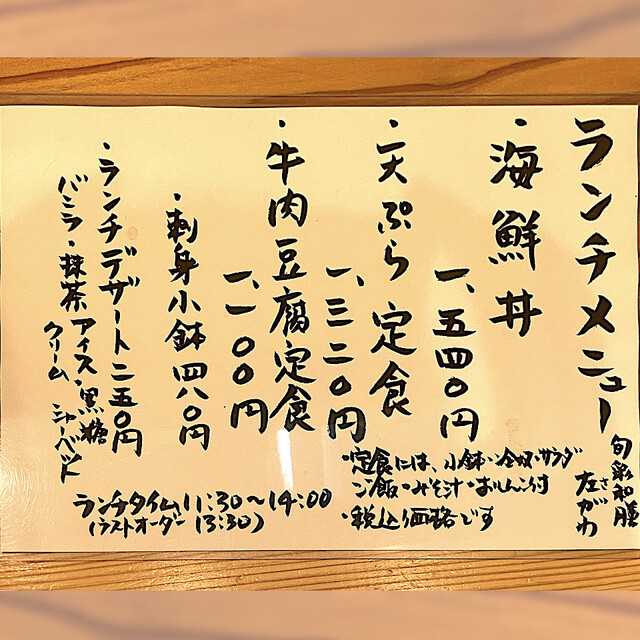 ランチメニュー
旬彩和膳
左がわ
さ
・海鮮丼
一、五四〇円
・天ぷら定食
一、三二〇円
・牛肉豆腐定食
一、一〇〇円
・刺身小鉢 四八〇円
・ランチデザート 二五〇円
バニラ・抹茶アイス・黒糖
クリーム シャーベット
・定食には、小鉢・冷奴・サラダ
ご飯・みそ汁・おしんこ付
・税込価格です
ランチタイム 11:30〜14:00
(ラストオーダー 13:30)